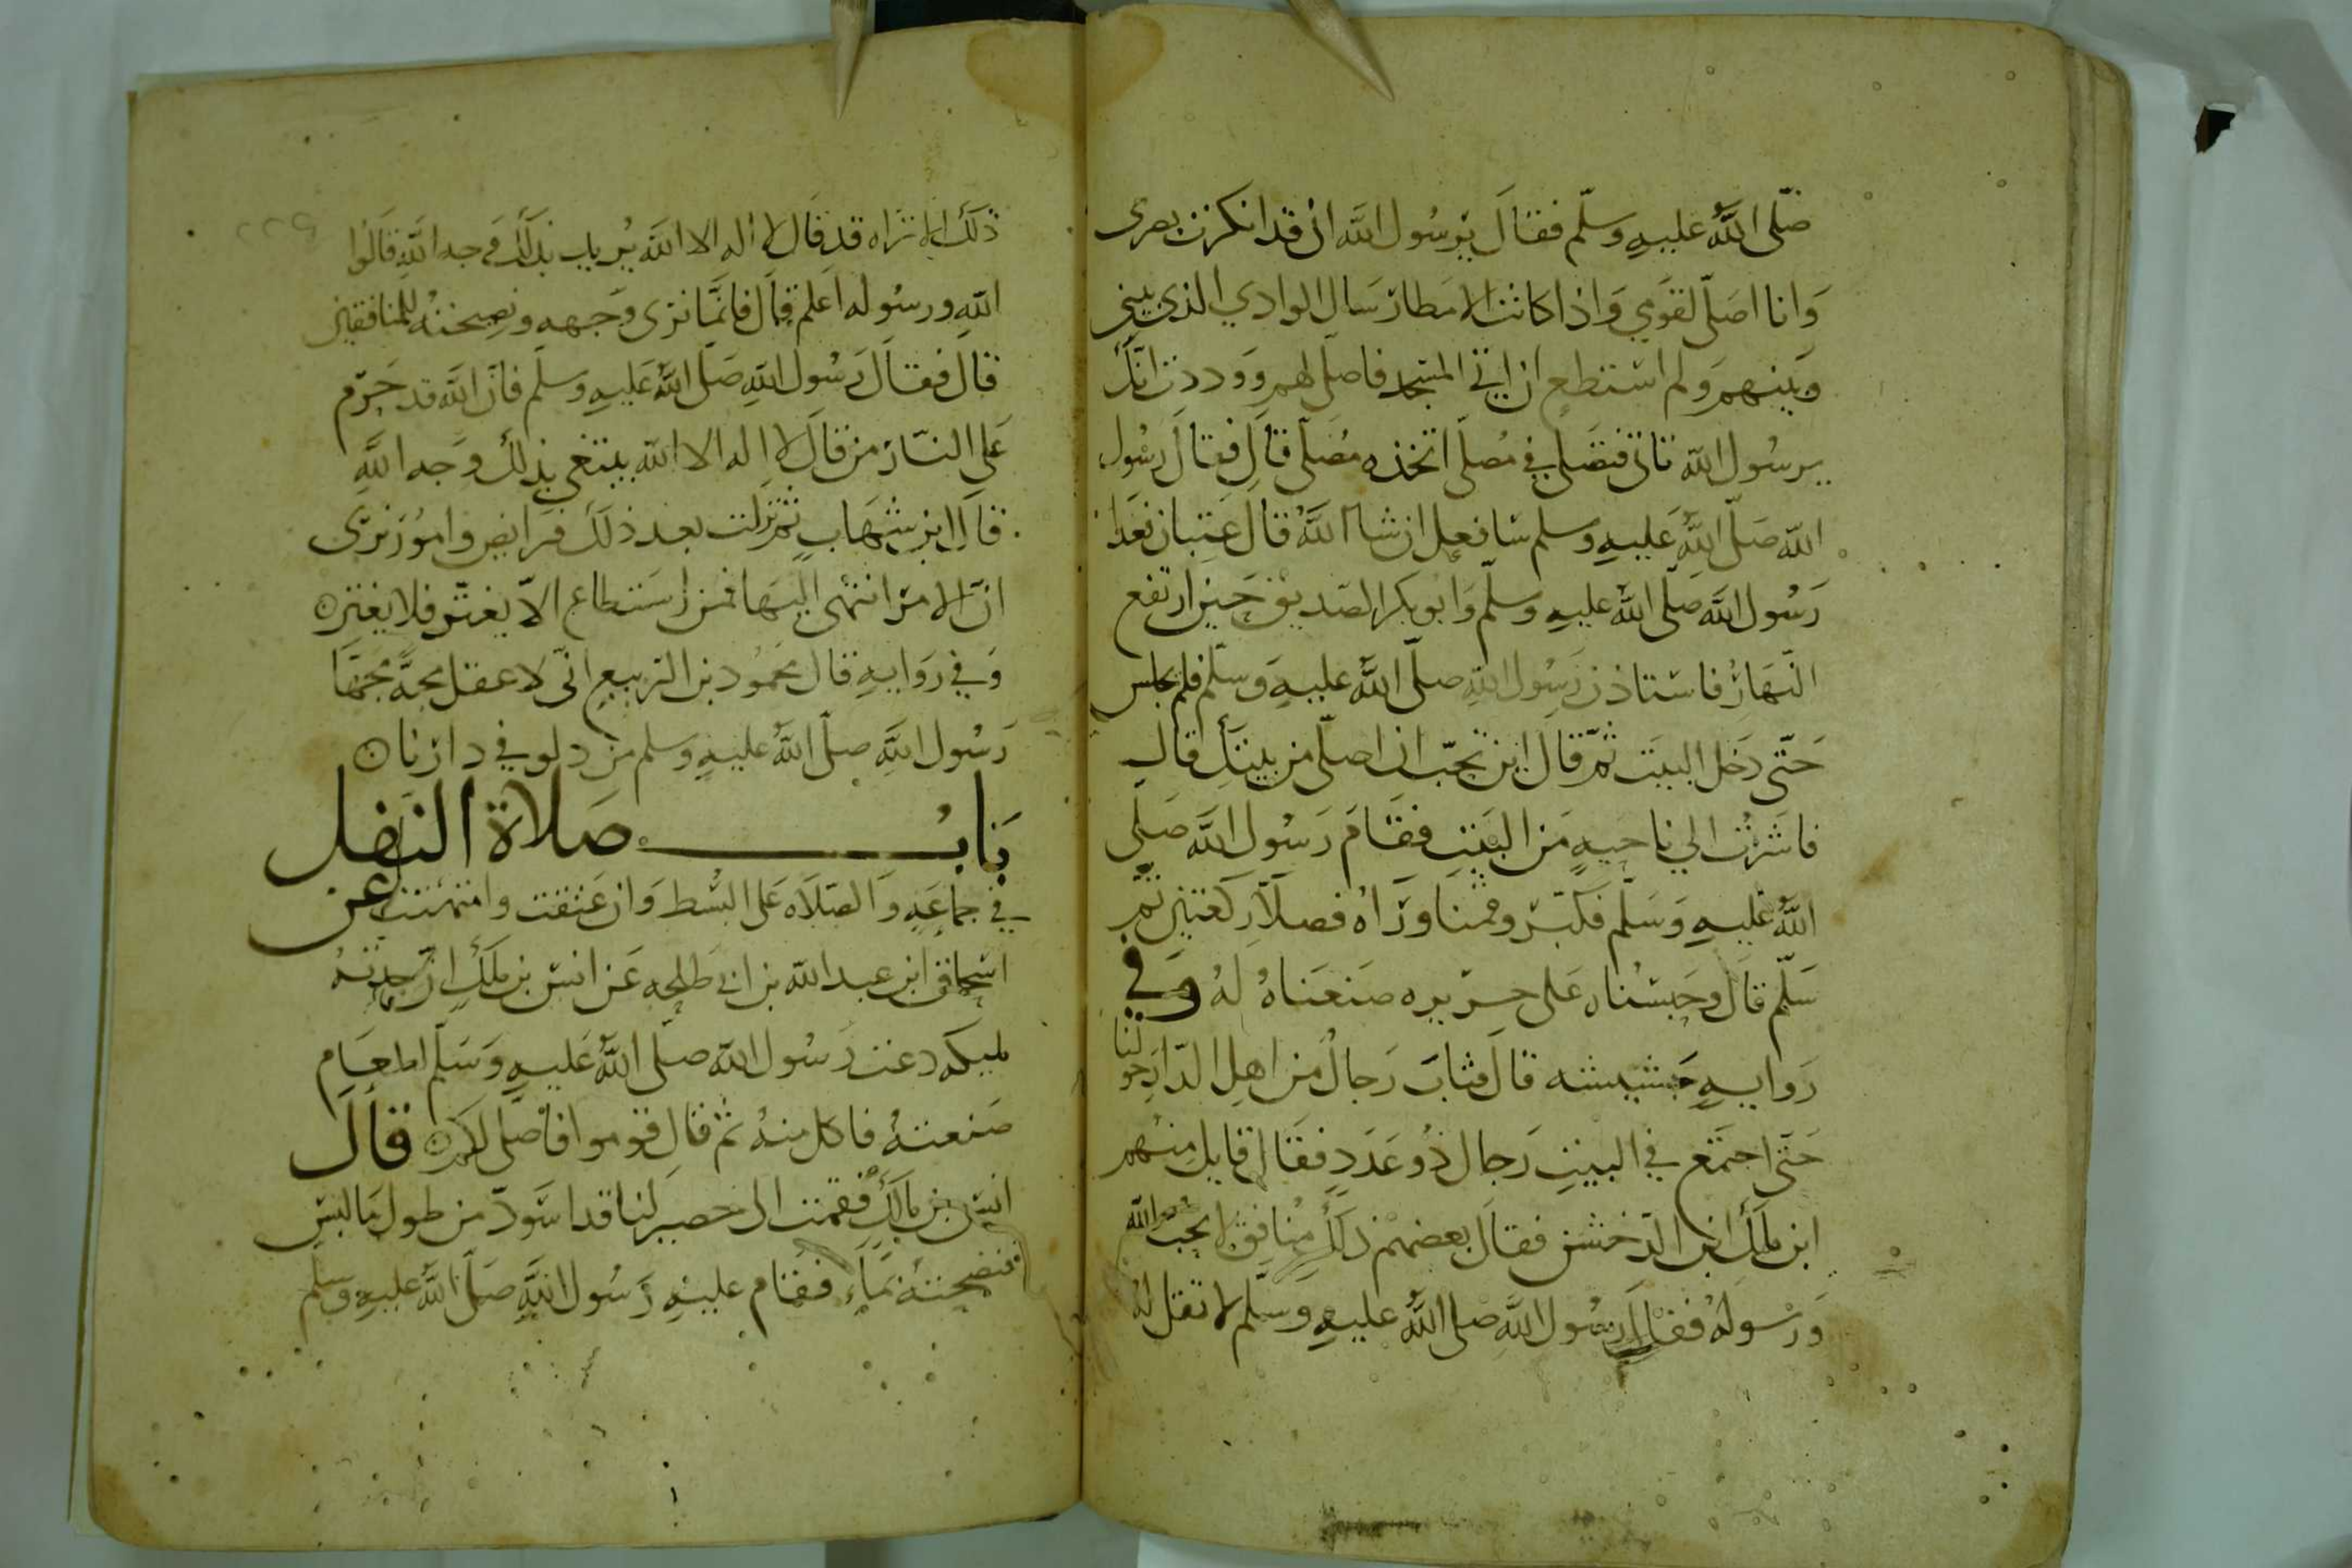 صلّى اللَّهُ عليهِ وسلّم فقالَ يرسُول اللَّه انى قد انكرت بصرى
وَانا اصَلّى لقَومي وَاذا كانت الامطار سَال الوادي الذي بيني
وبَينهم وَلم استطع ان اتي المسجد فاصلّى لهم وَودِدت انّكَ
يرسُول اللّه تاتى فتصَلي في مُصلّى اتخذه مُصَلّى قالَ فقالَ رَسُول
اللّه صَلّى اللَّهُ عَليهِ وسلم سَافعل ان شاا اللَّهُ قالَ عِتبان فغَدا
رَسُول اللَّه صَلّى اللَّهُ عليهِ وسلّم وَابُو بكر الصّديق حين ارتفع
النّهارُ فاستاذن رَسِوُل اللَّهِ صلّى اللَّهُ عليهِ وَسلّم فلم يجلس
حَتّى دَخَل البيَت ثمّ قالَ اين تحبّ ان اصلّى من بيتكَ قال
فاشَرْتُ الي ناحيةٍ مَن البَيْتِ فقَامَ رَسُول اللَّه صَلّى
اللَّهُ عليهِ وَسَلّم فكبّر وقمنا ورَاهُ فصلّا ركعتين ثمّ
سَلّم قالَ وحَبسْناه عَلى حريره صَنعَناهُ لهُ وَفي
رَوايةٍ جشيشه قالَ فثابَ رَجالٌ من اهل الدّار حولنا
حَتّى اجتَمَع في البيتِ رَجال ذُو عَدَدٍ فقَالَ قايل مِنهم
ابن ملك ابن الدّخشن فقالَ بعضهم ذلكَ مُنافِقٌ لا يحبّ اللّه
وَرسُولهُ فقالَ رسُول اللَّه صلى اللَّهُ عليهِ وَسلّم لا تقل لهُ
ذلكَ الا تَراه قد قالَ لا اله الا اللَّه يُريد بذلكَ وَجه اللَّهِ قالُوا
اللّه ورسُوله اعلم قال فانَّما نرى وَجهه ونصِيحتهُ للمنافقين
قال فقالَ رَسُول اللّهِ صَلّى اللَّهُ عَليهِ وسلم فانّ اللَّه قد حَرّم
عَلى النّار من قالَ لا اله الا اللّه يبتغي بذلكَ وَجه اللَّهِ
قالَ ابن شهَابٍ ثمّ نزلت بعد ذلكَ فرَايض وامُور نرى
انّ الامرَ انتهى اليهَا فمن استطاع الاّ يغترّ فلا يغتر ن
وَفي رَوايةٍ قالَ محمُود بن الرّبيع انّى لاعقل مجّةً مَجّهَا
رَسُول اللَّهِ صلّى اللَّهُ عليهِ وسلم من دلو في دارنا ن
بَابُ صَلاة النفل
في جماعَةٍ وَالصّلاه عَلى البُسط وَان عَتقت وامتهنت عن
اسحاق ابن عبد اللّه بن ابى طلحه عَن انس بن ملكٍ انّ جدّتهُ
مليكه دعت رَسُول اللّه صلّى اللَّهُ عَليهِ وَسَلّم لطعَامٍ
صَنعتهُ فاكل منهُ ثمّ قال قوموا فاصلّى لكم ن قالَ
انسُ بن مالكٍ فقمت الى حصير لنا قد اسَودّ من طول مَا لبس
فنضحتهُ بمَاءٍ فقام عليهِ رَسُول اللَّهِ صَلّى اللَّهُ عليهِ وسلم